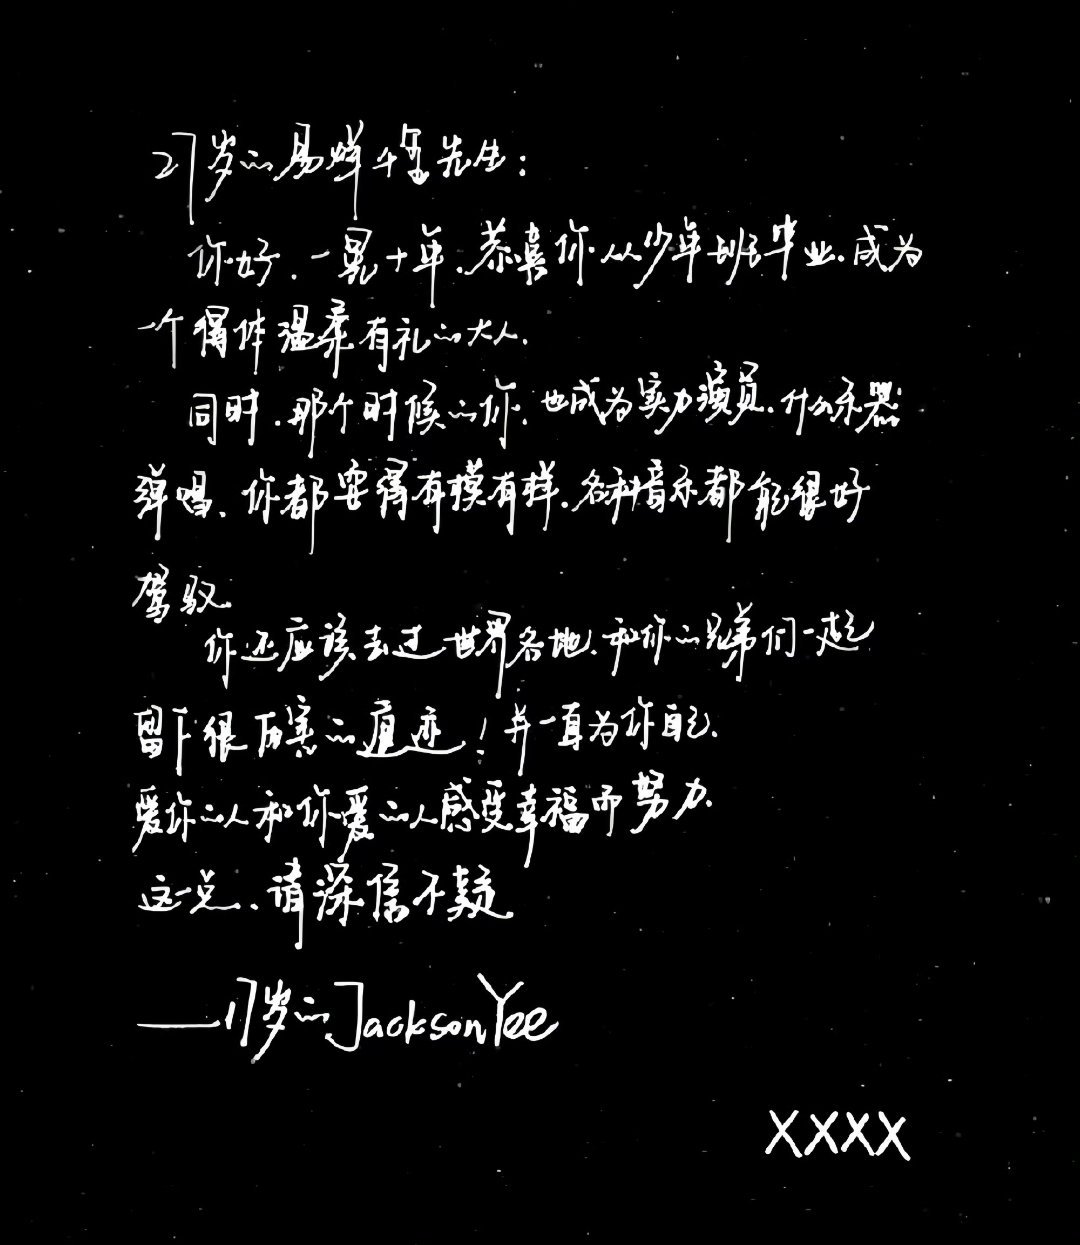 27岁的易烊千玺先生：
你好，一晃十年，恭喜你从少年班毕业，成为
一个得体温柔有礼的大人，
同时，那个时候的你，也成为实力演员，什么乐器
弹唱，你都耍得有模有样，各种音乐都能很好
驾驭
你还应该去过世界各地，和你的兄弟们一起
留下很厉害的痕迹！并一直为你自己，
爱你的人和你爱的人感受幸福而努力，
这一点，请深信不疑
——17岁的Jackson Yee
XXXX